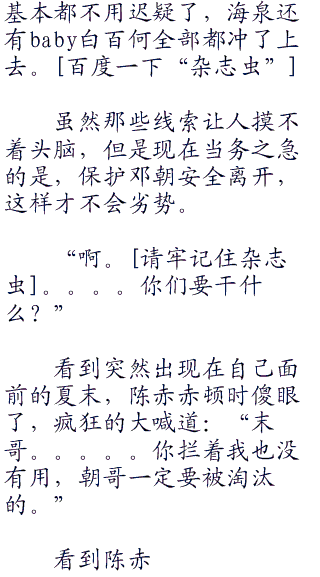 基本都不用迟疑了，海泉还
有baby白百何全部都冲了上
去。[百度一下“杂志虫”]
虽然那些线索让人摸不
着头脑，但是现在当务之急
的是，保护邓朝安全离开，
这样才不会劣势。
“啊。[请牢记住杂志
虫]。。。。你们要干什
么？”
看到突然出现在自己面
前的夏末，陈赤赤顿时傻眼
了，疯狂的大喊道：“末
哥。。。。。你拦着我也没
有用，朝哥一定要被淘汰
的。”
看到陈赤